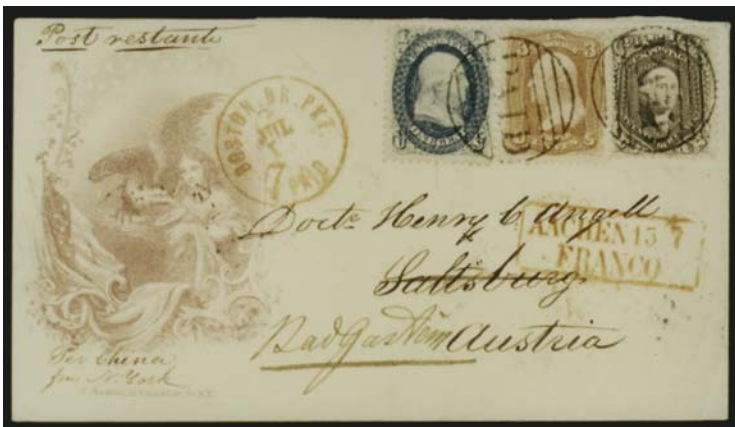 Post restante
BOSTON BR. PKT.
7
PAID
3 3
Doctr Henry C. Angell
AACHEN 15 7
FRANCO
Saltsburg
Bad Gastein Austria
Per China
from N. York